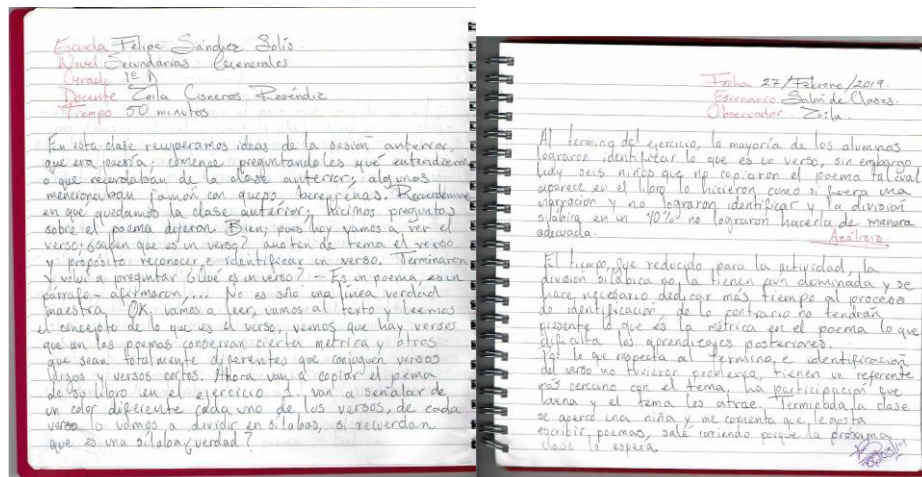 Escuela Felipe Sánchez Solís
Nivel Secundarias Generales
Grado 1º
Docente Zoila Cisneros Reséndiz
Tiempo 50 minutos
En esta clase recuperamos ideas de la sesión anterior,
que era poesía; comencé preguntándoles qué entendieron
o que recordaban de la clase anterior; algunos
mencionaban jamón con queso berenjenas. Recuerdenme
en que quedamos la clase anterior; hicimos preguntas
sobre el poema dijeron. Bien, pues hoy vamos a ver el
verso; ¿saben que es un verso? anoten de tema el verso
y propósito reconocer e identificar un verso. Terminaron
y volví a preguntar ¿Qué es un verso? - Es un poema, es un
párrafo - afirmaron,... No es sólo una línea verdad
maestra. OK. vamos a leer, vamos al texto y leemos
el concepto de lo que es el verso, vemos que hay versos
que en los poemas conservan cierta métrica y otros
que sean totalmente diferentes que conjuguen versos
largos y versos cortos. Ahora van a copiar el poema
de su libro en el ejercicio 1, van a señalar de
un color diferente cada uno de los versos, de cada
verso lo vamos a dividir en sílabas, si recuerdan
que es una sílaba ¿verdad?
Fecha 27/Febrero/2019.
Escenario Salón de Clases.
Observador Zoila.
Al término del ejercicio, la mayoría de los alumnos
lograron identificar lo que es un verso, sin embargo
hay seis niños que no copiaron el poema tal cual
aparece en el libro lo hicieron como si fuera una
narración y no lograron identificar y la división
silábica en un 40% no lograron hacerla de manera
adecuada.
Análisis
El tiempo, fue reducido para la actividad, la
división silábica no la tienen aún dominada y se
hace necesario dedicar más tiempo al proceso
de identificación de lo contrario no tendrán
presente lo que es la métrica en el poema lo que
dificulta los aprendizajes posteriores.
Por lo que respecta al término e identificación
del verso no tuvieron problema, tienen un referente
más cercano con el tema, la participación fue
buena y el tema les atrae. Terminada la clase
se acercó una niña y me comenta que le gusta
escribir poemas, sale corriendo porque la próxima
clase la espera.